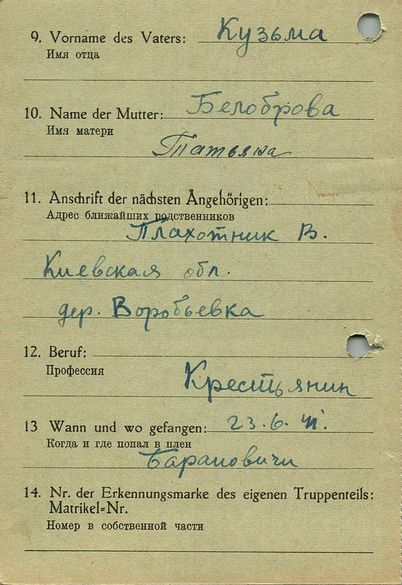 9. Vorname des Vaters: Кузьма
Имя отца
10. Name der Mutter: Белоброва
Имя матери
Татьяна
11. Anschrift der nächsten Angehörigen:
Адрес ближайших родственников
Плахотник В.
Киевская обл.
дер. Воробьевка
12. Beruf:
Профессия
Крестьянин
13 Wann und wo gefangen: 23.6.41.
Когда и где попал в плен
Барановичи
14. Nr. der Erkennungsmarke des eigenen Truppenteils:
Matrikel=Nr.
Номер в собственной части